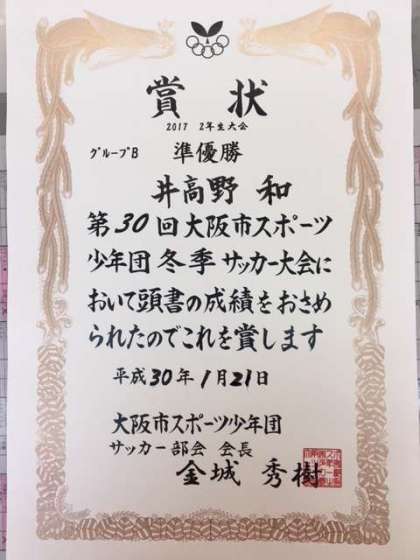 賞状
2017 2年生大会
グループB 準優勝
井高野 和
第30回大阪市スポーツ
少年団冬季サッカー大会に
おいて頭書の成績をおさめ
られたのでこれを賞します
平成30年1月21日
大阪市スポーツ少年団
サッカー部会 会長
金城 秀樹